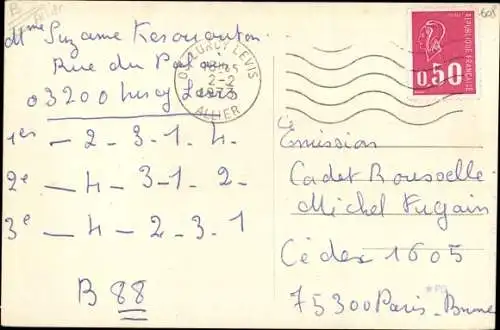 Mme Suzanne
Rue du
03200
1er — 2 - 3 - 1 - 4 -
2e — 4 — 3 - 1 - 2 -
3e — 4 — 2 - 3 - 1
B 88
LURCY LEVIS
2-2
1973
ALLIER
REPUBLIQUE FRANÇAISE
0,50
Emission
Cadet Rousselle
Michel Fugain
Cédex 1605
75300 Paris - Brune